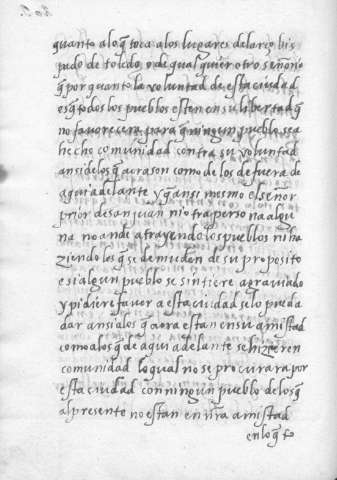 quanto a lo q̃ toca a los lugares del arçobis
pado de toledo, o de qual quier otro señorio
q̃ por quanto la voluntad de esta ciudad
es q̃ todos los pueblos esten en su libertad q̃
no favorecera para q̃ ningun pueblo sea
hecho comunidad contra su voluntad
ansi de los q̃ aora son como de los de fuera de
aqui adelante y q̃ ansi mesmo el señor
prior de san juan ni otra persona algu
na no ande atrayendo los pueblos ni ha
ziendoles q̃ se demuden de su proposito
e si algun pueblo se sintiere agraviado
y pidiere favor a esta ciudad se lo pueda
dar ansi a los q̃ aora estan en su amistad
como a los q̃ de aqui adelante se hizieren
comunidad lo qual no se procurara por
esta ciudad con ningun pueblo de los q̃
al presente no estan en nr̃a amistad
en lo q̃